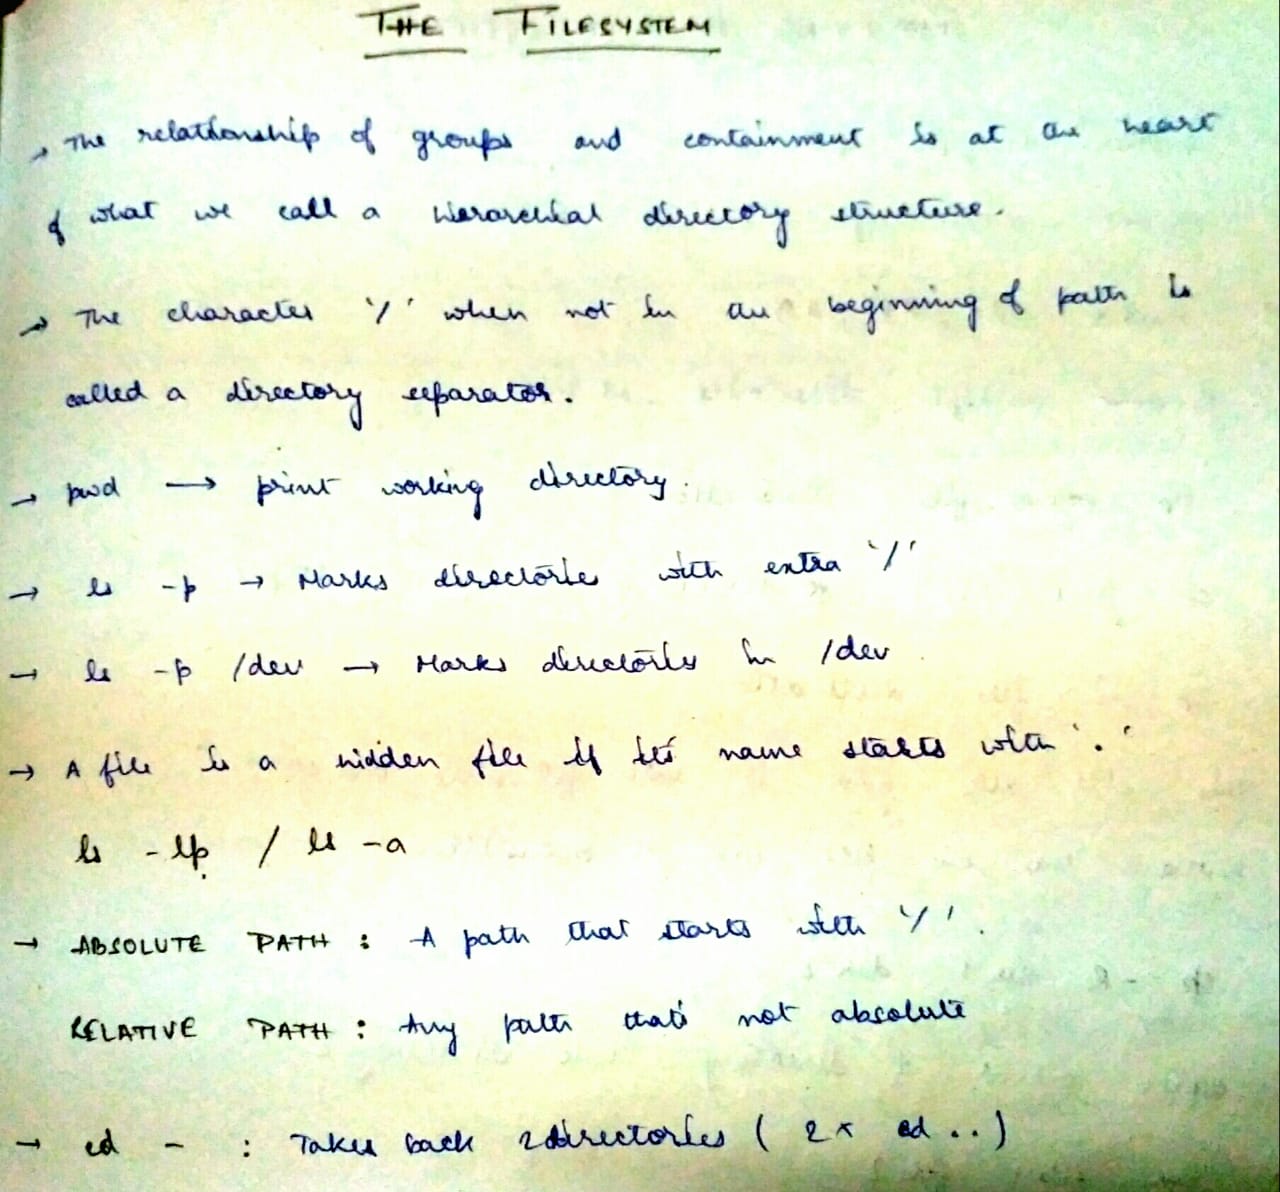 THE FILESYSTEM
→ The relationship of groups and containment is at the heart
of what we call a hierarchial directory structure.
→ The character '/' when not in the beginning of path is
called a directory separator.
→ pwd → print working directory.
→ ls -p → Marks directories with extra '/'
→ ls -p /dev → Marks directories in /dev
→ A file is a hidden file if its name starts with '.'
ls -lp / ls -a
→ ABSOLUTE PATH : A path that starts with '/'.
RELATIVE PATH : Any path that's not absolute
→ cd - : Takes back 2directories ( 2x cd ..)